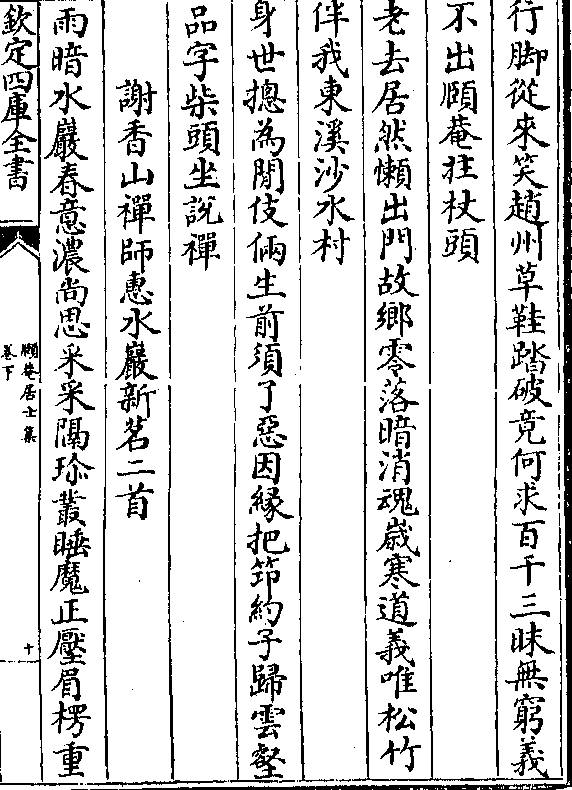 行脚從來笑趙州草鞋踏破竟何求百千三昧無窮義
不出頤菴拄杖頭
老去居然懶出門故鄉零落暗消魂嵗寒道義唯松竹
伴我東溪沙水村
身世摠為閒伎倆生前須了惡因緣把筇約子歸雲壑
品字柴頭坐說禪
謝香山禪師惠水巖新茗二首
雨暗水巖春意濃尚思采采隔珍叢睡魔正壓眉楞重
欽定四庫全書
頤菴居士集
卷下
十